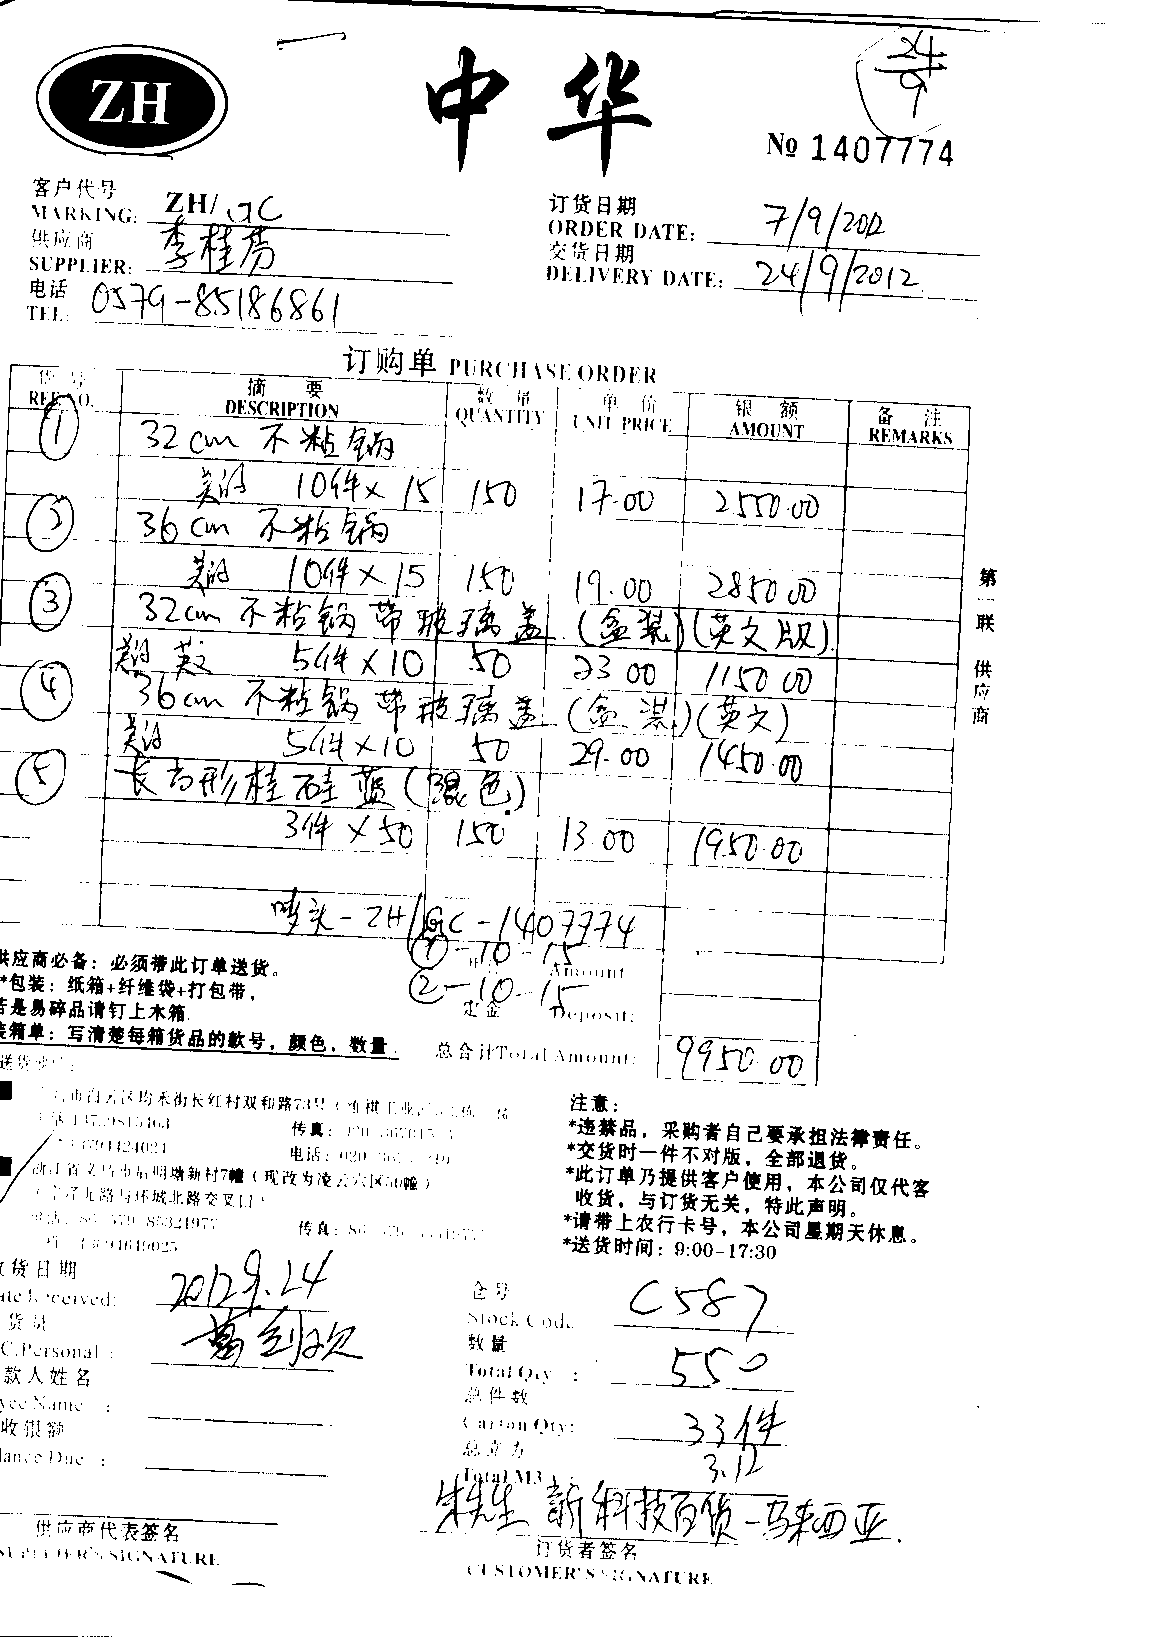 ZH
中华
24
9
№ 1407774
客户代号
MARKING: ZH/GC
供应商
SUPPLIER: 李桂芬
电话
TEL: 0579-85186861
订货日期
ORDER DATE: 7/9/2012
交货日期
DELIVERY DATE: 24/9/2012
订购单 PURCHASE ORDER
货号 摘要 数量 单价 银额 备注
REF.NO. DESCRIPTION QUANTITY UNIT PRICE AMOUNT REMARKS
① 32cm 不粘锅
10件×15 150 17.00 2550.00
② 36cm 不粘锅
10件×15 150 19.00 2850.00
③ 32cm 不粘锅 带玻璃盖 (盒装)(英文版)
英文 5件×10 50 23.00 1150.00
④ 36cm 不粘锅 带玻璃盖 (盒装)(英文)
5件×10 50 29.00 1450.00
⑤ 长方形桂硅蓝(混色)
3件×50 150 13.00 1950.00
唛头-ZH/GC-1407774
①-10-15
Amount
②-10-15
定金 Deposit:
总合计Total Amount: 9950.00
第一联 供应商
供应商必备：必须带此订单送货。
*包装：纸箱+纤维袋+打包带，
若是易碎品请钉上木箱.
装箱单：写清楚每箱货品的款号，颜色，数量.
市白云区均禾街长红村双和路73号
传真：
电话：020
浙江省义乌市后明塘新村7幢（现改为凌云六区50幢）
环城北路交叉口）
85321977
传真：86
注意：
*违禁品，采购者自己要承担法律责任。
*交货时一件不对版，全部退货。
*此订单乃提供客户使用，本公司仅代客
收货，与订货无关，特此声明。
*请带上农行卡号，本公司星期天休息。
*送货时间：9:00-17:30
收货日期
Date Received: 2012.9.24
货员
C.Personal:
款人姓名
yee Name :
收银额
lance Due :
供应商代表签名
SUPPLIER'S SIGNATURE
仓号
Stock Code C587
数量
Total Qty : 550
总件数
Carton Qty: 33件
总立方
Total M3 : 3.12
朱先生 新科技百货-马来西亚.
订货者签名
CUSTOMER'S SIGNATURE